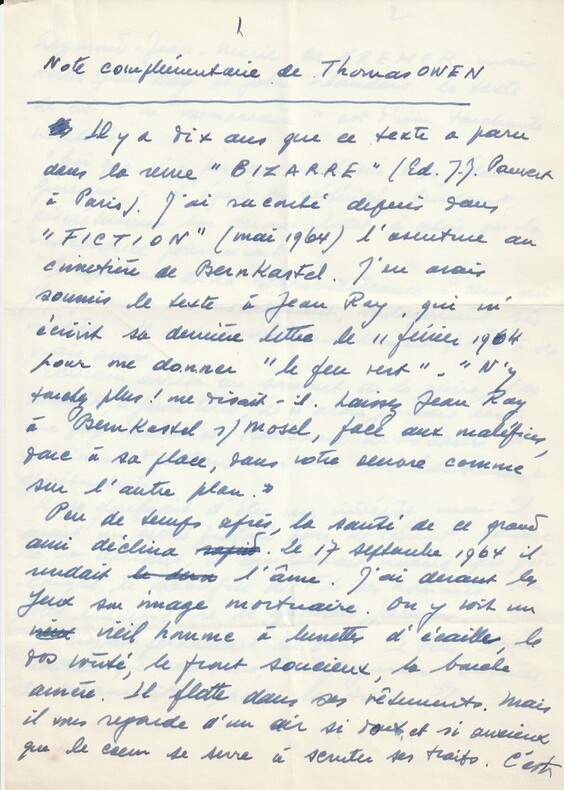 1
Note complémentaire de Thomas OWEN
Il y a dix ans que ce texte a paru
dans la revue "BIZARRE" (Ed. J.J. Pauvert
à Paris). J'ai raconté depuis dans
"FICTION" (mai 1964) l'aventure au
cimetière de Bernkastel. J'en avais
soumis le texte à Jean Ray, qui m'
écrivit sa dernière lettre le 11 février 1964
pour me donner "le feu vert". "N'y
touchez plus! me disait-il. Laissez Jean Ray
à Bernkastel s/Mosel, face aux maléfices,
donc à sa place, dans votre oeuvre comme
sur l'autre plan."
Peu de temps après, la santé de ce grand
ami déclina rapid. Le 17 septembre 1964 il
rendait l'âme. J'ai devant les
yeux son image mortuaire. On y voit un
vieux vieil homme à lunettes d'écailles, le
dos voûté, le front soucieux, la bouche
amère. Il flotte dans ses vêtements. Mais
il vous regarde d'un air si doux et si anxieux
que le coeur se serre à scruter ses traits. C'est